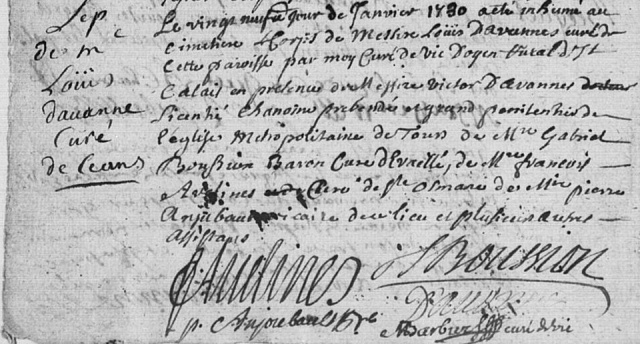 Sep.
de mc
Loüis
davanne
Curé
de Ceans
Le vingt neuf jour de Janvier 1730 a été inhumé au
cimetiere le corps de Messire Loüis Davannes curé de
cette paroisse par moy Curé de Vic Doyen Rural de St
Calais en presence de Messire Victor Davannes docteur
licentié Chanoine prebendé et grand penitentier de
l'eglise Metropolitaine de Tours de Mre Gabriel
Boussion Baron Curé d'Evaillé, de Mre francois
Ardines Curé de Ste Osmane de Mtre pierre
Anjubault vicaire de ce lieu et plusieurs autres
assistans
Audines
Boussion
p. Anjoubault
Davanne
Barbier curé de Vic